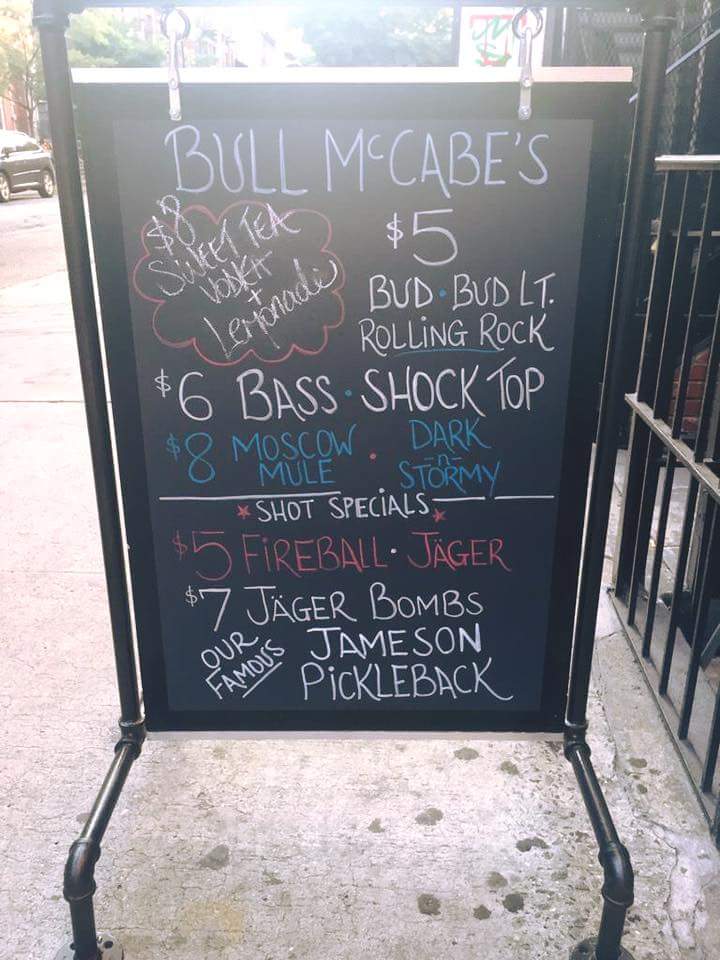 BULL McCABE'S
$8
SWEET TEA
VODKA
+
Lemonade
$5
BUD · BUD LT.
ROLLING ROCK
$6 BASS · SHOCK TOP
$8 MOSCOW MULE · DARK -n- STORMY
SHOT SPECIALS
$5 FIREBALL · JÄGER
$7 JÄGER BOMBS
OUR FAMOUS
JAMESON
PICKLEBACK